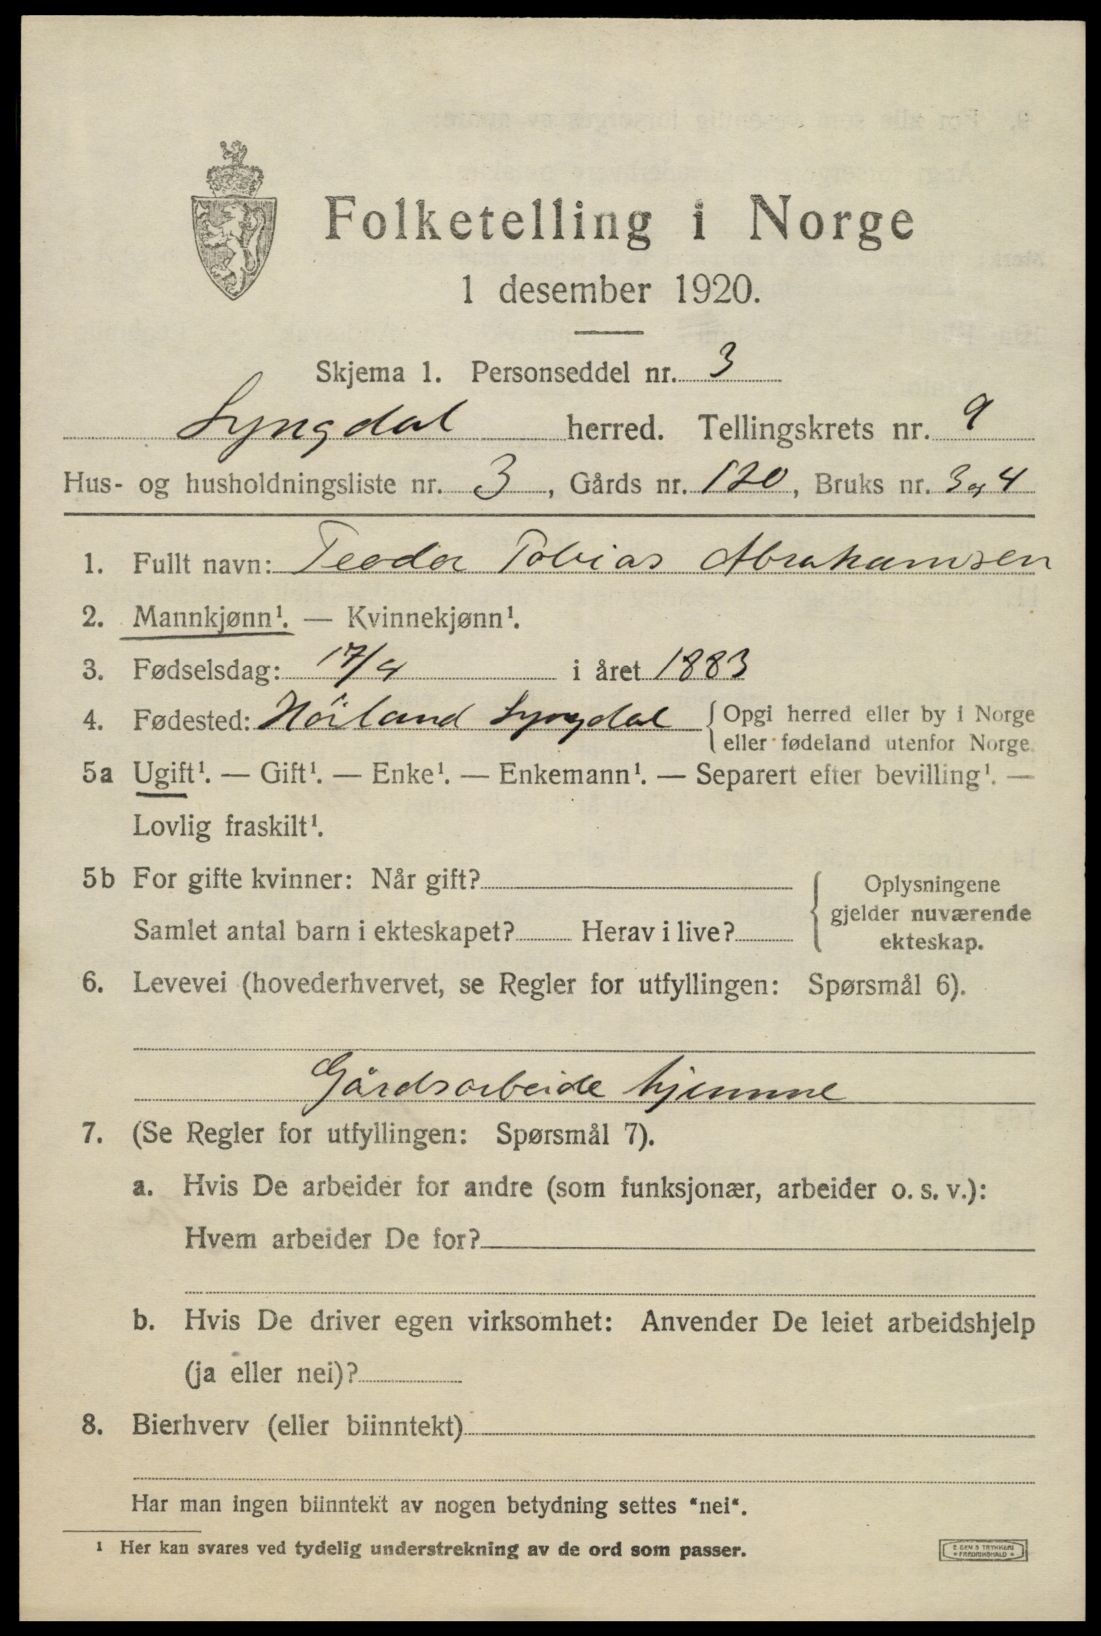 Folketelling i Norge
1 desember 1920.
Skjema 1. Personseddel nr. 3
Lyngdal herred. Tellingskrets nr. 9
Hus- og husholdningsliste nr. 3, Gårds nr. 120, Bruks nr. 3 og 4
1. Fullt navn: Teodor Tobias Abrahamsen
2. Mannkjønn¹. — Kvinnekjønn¹.
3. Fødselsdag: 17/9 i året 1883
4. Fødested: Höiland Lyngdal {Opgi herred eller by i Norge
eller fødeland utenfor Norge.
5a Ugift¹. — Gift¹. — Enke¹. — Enkemann¹. — Separert efter bevilling¹. —
Lovlig fraskilt¹.
5b For gifte kvinner: Når gift?
Samlet antal barn i ekteskapet? Herav i live?
{Oplysningene
gjelder nuværende
ekteskap.
6. Levevei (hovederhvervet, se Regler for utfyllingen: Spørsmål 6).
Gårdsarbeide hjemme
7. (Se Regler for utfyllingen: Spørsmål 7).
a. Hvis De arbeider for andre (som funksjonær, arbeider o. s. v.):
Hvem arbeider De for?
b. Hvis De driver egen virksomhet: Anvender De leiet arbeidshjelp
(ja eller nei)?
8. Bierhverv (eller biinntekt)
Har man ingen biinntekt av nogen betydning settes "nei".
¹ Her kan svares ved tydelig understrekning av de ord som passer.